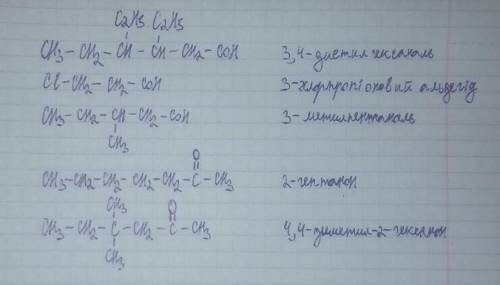 C₂H₅ C₂H₅
CH₃ – CH₂ – CH – CH – CH₂ – COH 3,4-диетил гексаналь
Cl – CH₂ – CH₂ – COH 3-хлорпропіоновий альдегід
CH₃ – CH₂ – CH – CH₂ – COH 3-метилпентаналь
CH₃
O
CH₃–CH₂–CH₂–CH₂–CH₂–C–CH₃ 2-гептанон
CH₃ O
CH₃ – CH₂ – C – CH₂ – C – CH₃ 4,4-диметил-2-гексанон
CH₃